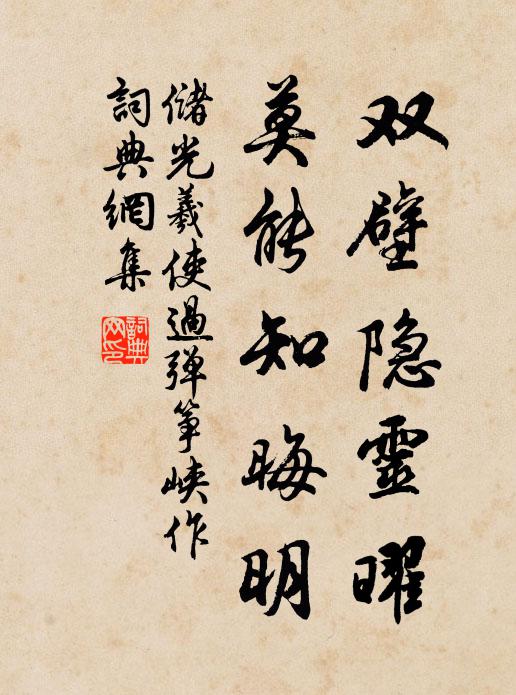 双壁隐靈曜
莫能知晦明
儲光羲使過弹筝峡作
詞典網集
詞典網印